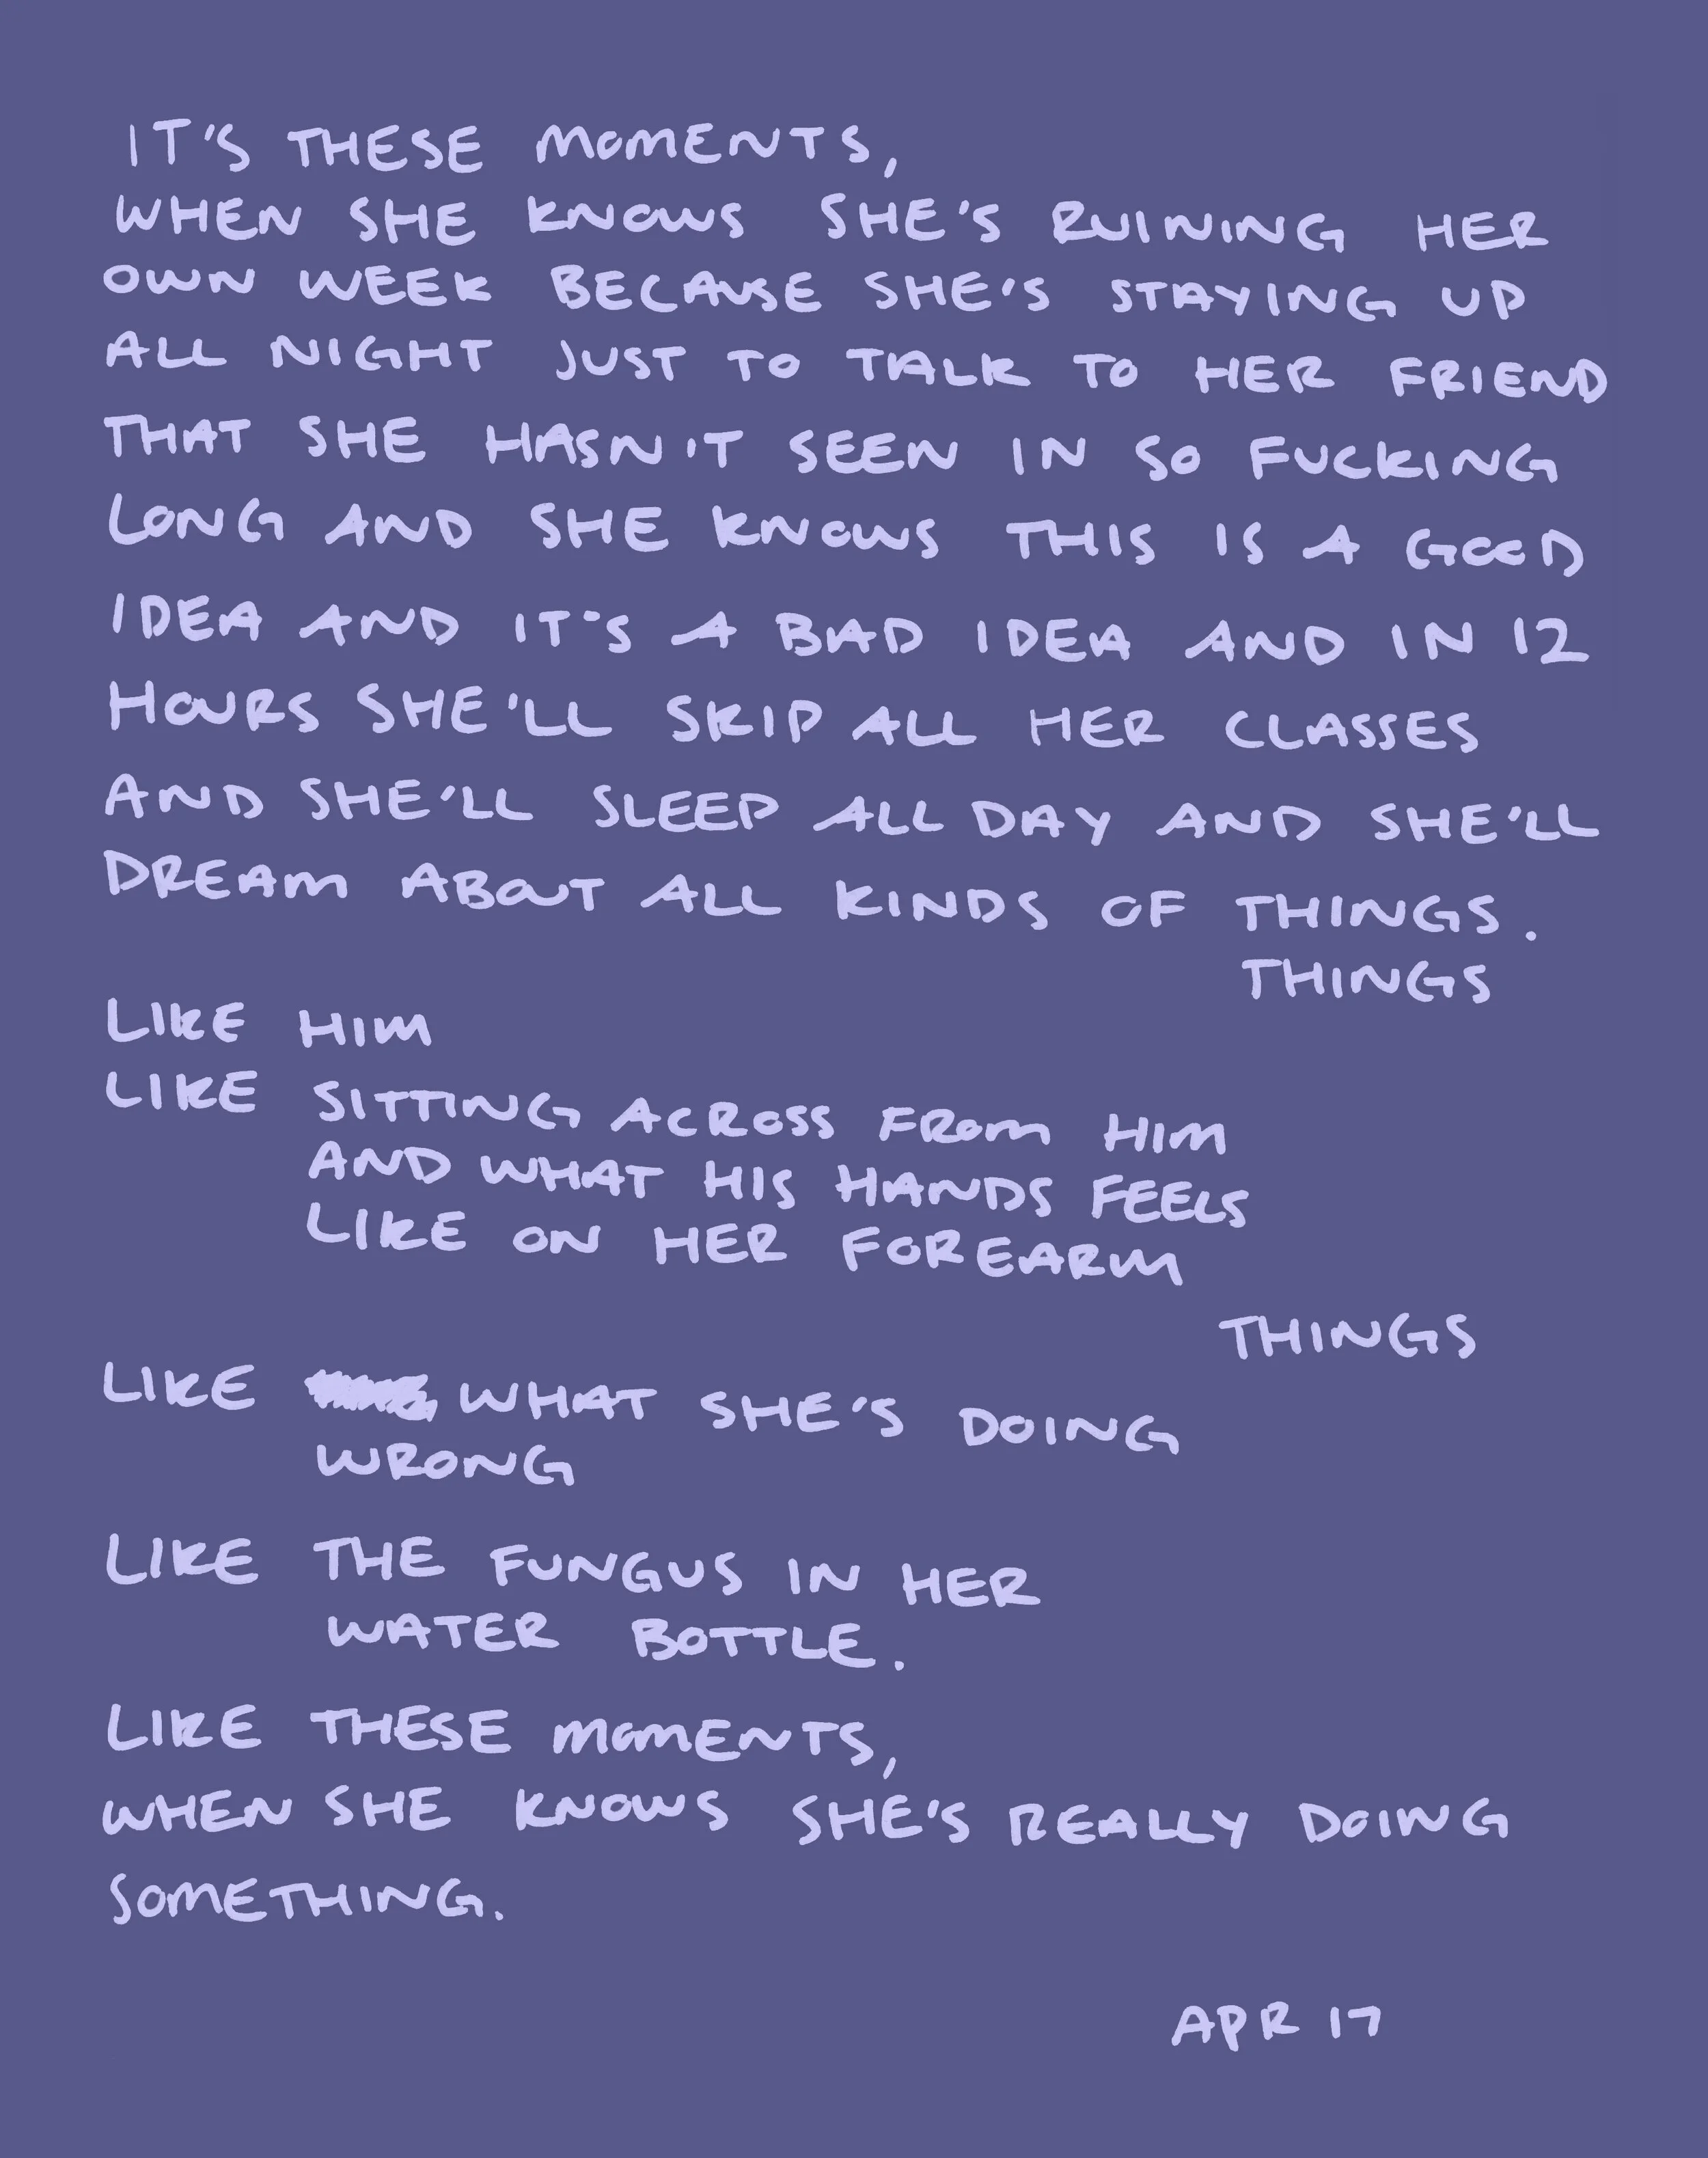 IT'S THESE MOMENTS,
WHEN SHE KNOWS SHE'S RUINING HER
OWN WEEK BECAUSE SHE'S STAYING UP
ALL NIGHT JUST TO TALK TO HER FRIEND
THAT SHE HASN'T SEEN IN SO FUCKING
LONG AND SHE KNOWS THIS IS A GOOD
IDEA AND IT'S A BAD IDEA AND IN 12
HOURS SHE'LL SKIP ALL HER CLASSES
AND SHE'LL SLEEP ALL DAY AND SHE'LL
DREAM ABOUT ALL KINDS OF THINGS.
THINGS
LIKE HIM
LIKE SITTING ACROSS FROM HIM
AND WHAT HIS HANDS FEELS
LIKE ON HER FOREARM
THINGS
LIKE WHAT SHE'S DOING
WRONG
LIKE THE FUNGUS IN HER
WATER BOTTLE.
LIKE THESE MOMENTS,
WHEN SHE KNOWS SHE'S REALLY DOING
SOMETHING.
APR 17